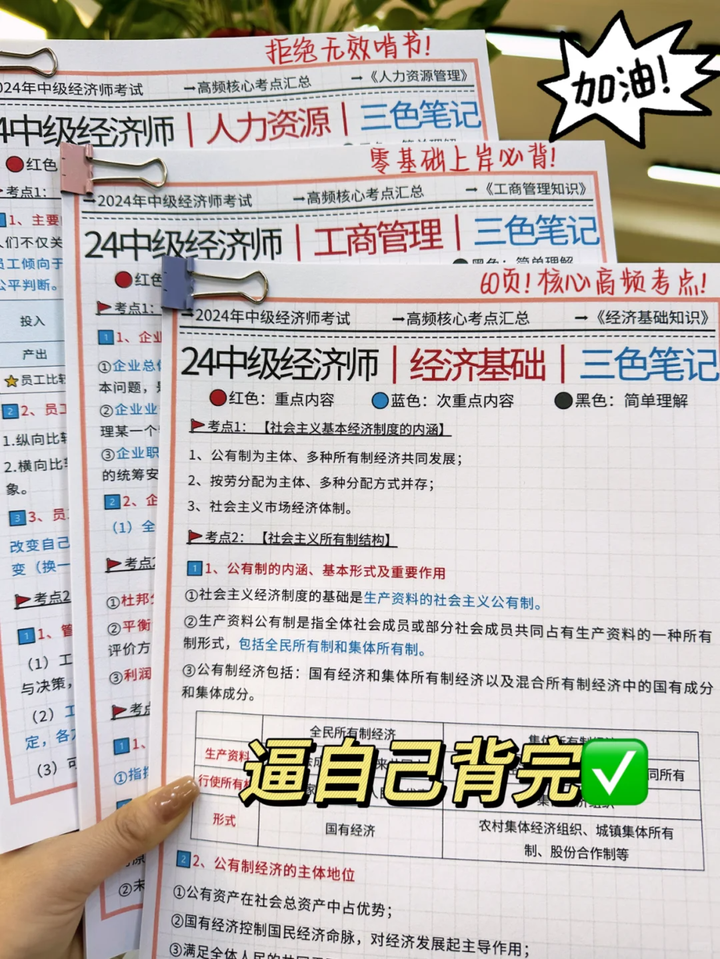 加油!
拒绝无效啃书!
2024年中级经济师考试
→高频核心考点汇总
→《人力资源管理》
24中级经济师|人力资源|三色笔记
红色
考点1:
1、主要
人们不仅关
员工倾向于
公平判断。
投入
产出
员工比较
2、员工
1.纵向比较
2.横向比较
象。
3、员
改变自己
变(换一
考点2
1、管
(1)工
与决策,
(2)
定,各
(3)可
零基础上岸必背!
→2024年中级经济师考试
→高频核心考点汇总
→《工商管理知识》
24中级经济师|工商管理|三色笔记
红色
黑色:简单理解
考点1:
1、企业
①企业总体
本问题,
②企业业
理某一个
③企业职
的统筹安
2、企
(1)全
考点2
①杜邦分
②平衡
评价方
③利润
考点
1、
①指
②未
60页!核心高频考点!
→2024年中级经济师考试
→高频核心考点汇总
→《经济基础知识》
24中级经济师|经济基础|三色笔记
红色:重点内容
蓝色:次重点内容
黑色:简单理解
考点1:【社会主义基本经济制度的内涵】
1、公有制为主体、多种所有制经济共同发展;
2、按劳分配为主体、多种分配方式并存;
3、社会主义市场经济体制。
考点2:【社会主义所有制结构】
1 1、公有制的内涵、基本形式及重要作用
①社会主义经济制度的基础是生产资料的社会主义公有制。
②生产资料公有制是指全体社会成员或部分社会成员共同占有生产资料的一种所有
制形式,包括全民所有制和集体所有制。
③公有制经济包括:国有经济和集体所有制经济以及混合所有制经济中的国有成分
和集体成分。
全民所有制经济
生产资料
同所有
行使所有权
形式
国有经济
农村集体经济组织、城镇集体所有
制、股份合作制等
逼自己背完
2 2、公有制经济的主体地位
①公有资产在社会总资产中占优势;
②国有经济控制国民经济命脉,对经济发展起主导作用;
③满足全体人民的共同